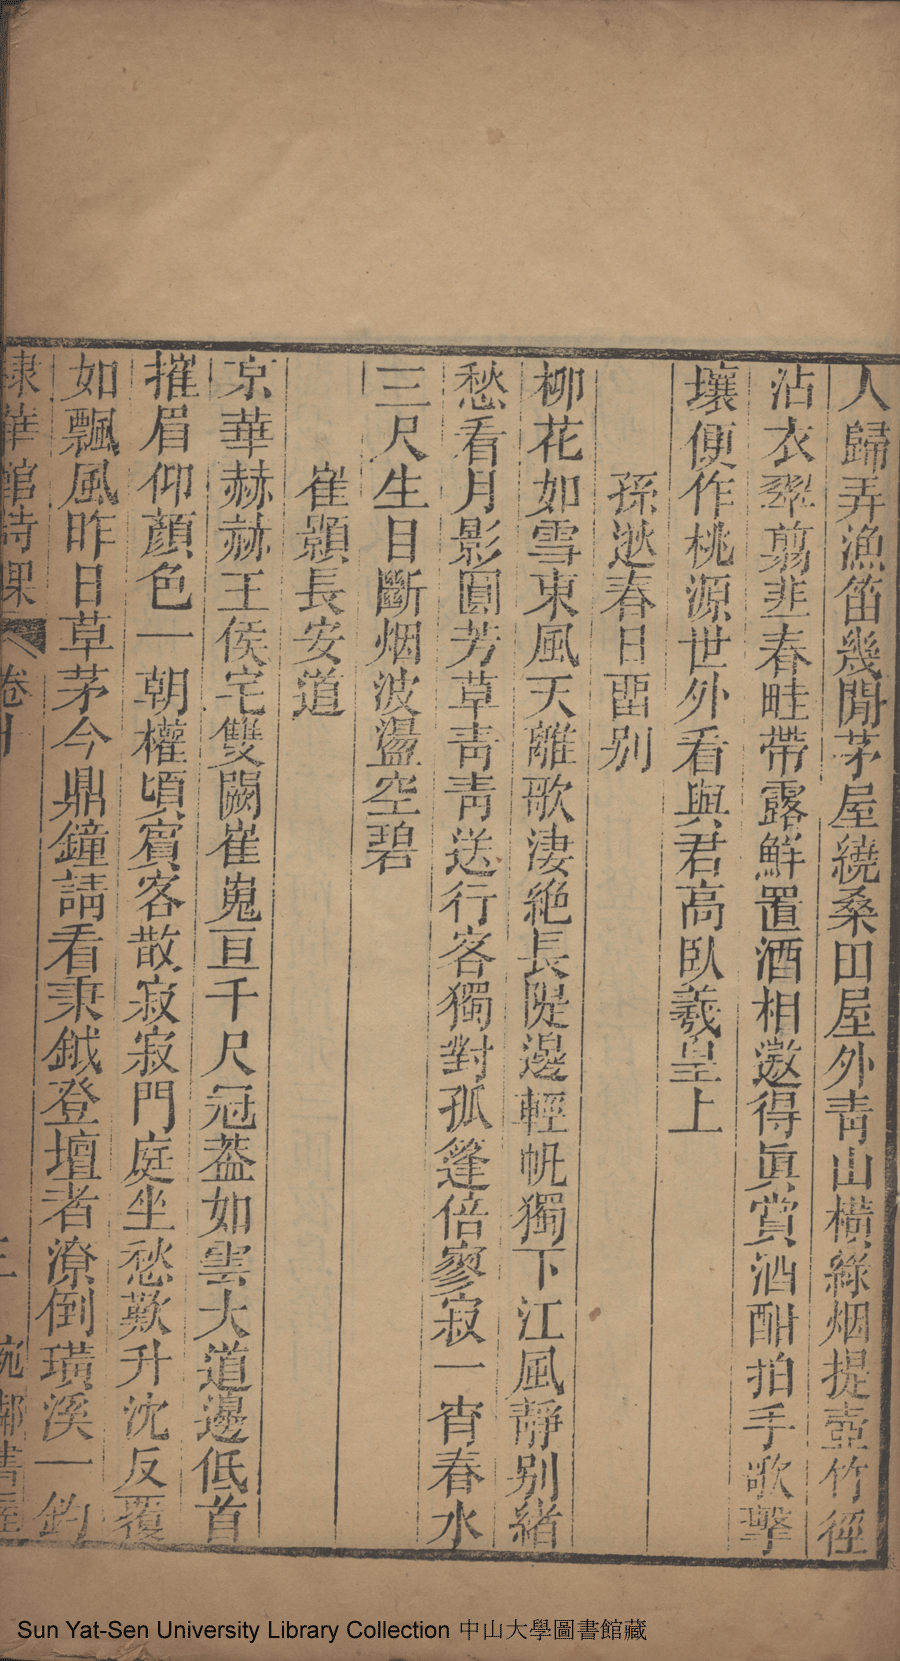 人歸弄漁笛幾閒茅屋繞桑田屋外靑山橫綠烟提壺竹徑
沾衣翠翦韭春畦帶露鮮置酒相邀得眞賞酒酣拍手歌擊
壤便作桃源世外看與君高臥羲皇上
孫逖春日畱别
柳花如雪東風天離歌淒絶長隄邊輕帆獨下江風靜别緒
愁看月影圓芳草靑靑送行客獨對孤篷倍寥寂一宵春水
三尺生目斷烟波盪空碧
崔顥長安道
京華赫赫王侯宅雙闕崔嵬亘千尺冠葢如雲大道邊低首
摧眉仰顏色一朝權頃賓客散寂寂門庭坐愁歎升沈反覆
如飄風昨日草茅今鼎鐘請看秉鉞登壇者潦倒璜溪一釣
棣華館詩課 卷十 三 宛鄰書屋
Sun Yat-Sen University Library Collection 中山大學圖書館藏